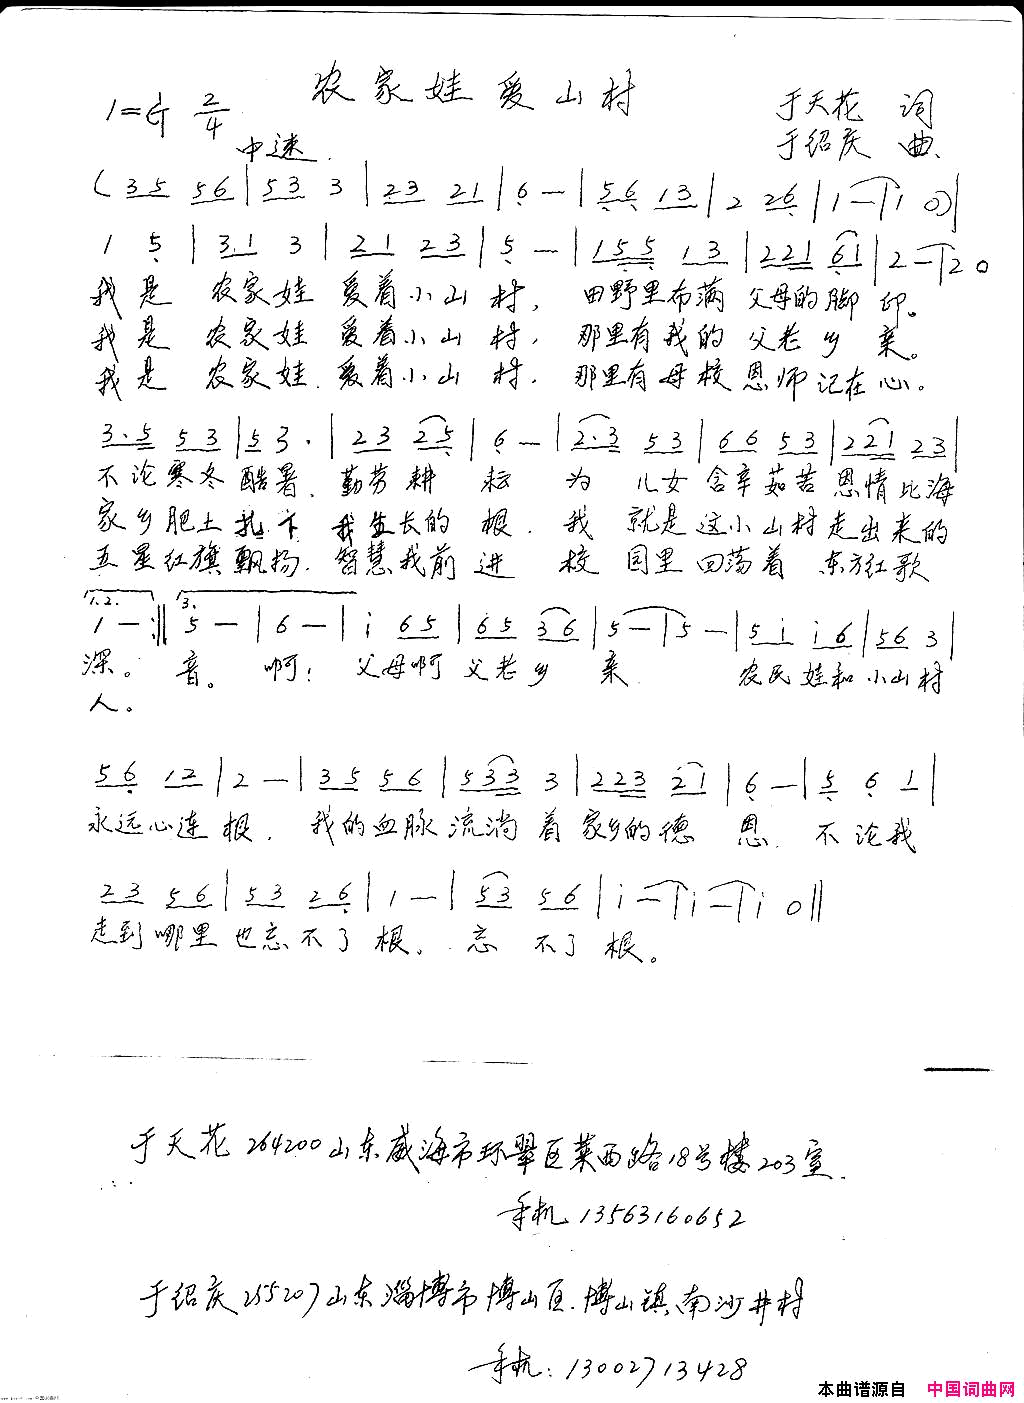 农家娃爱山村
1=G 2/4
于天花 词
中速.
于绍庆 曲
( 35 56 | 53 3 | 23 21 | 6 - | 56 13 | 2 26 | 1 - | 1 0) |
1 5 | 3.1 3 | 21 23 | 5 - | 155 13 | 221 61 | 2 - | 2 0
我是 农家娃 爱着小山 村, 田野里布满 父母的脚 印。
我是 农家娃 爱着小山 村, 那里有我的 父老乡 亲。
我是 农家娃. 爱着小山 村. 那里有母校 恩师记在心。
3.5 53 | 53. | 23 25 | 6 - | 2.3 53 | 66 53 | 221 23 |
不论寒冬 酷暑. 勤劳耕 耘 为 儿女含辛茹苦 恩情比海
家乡肥土 扎下 我生长的 根. 我 就是这小山村走出来的
五星红旗 飘扬. 智慧我前 进 校 园里回荡着 东方红歌
1.2. 3.
1 - :‖ 5 - | 6 - | i 65 | 65 36 | 5 - | 5 - | 5i i6 | 56 3 |
深。 音。 啊! 父母啊 父老乡 亲 农民娃和 小山村
人。
56 12 | 2 - | 35 56 | 533 3 | 223 21 | 6 - | 5 6 1 |
永远心连 根. 我的血脉 流淌 着 家乡的德 恩. 不论我
23 56 | 53 26 | 1 - | 53 56 | i - | i - | i 0 ‖
走到哪里 也忘不了 根. 忘 不了 根。
于天花 264200山东威海市环翠区莱西路18号楼203室.
手机 13563160652
于绍庆 255207山东淄博市博山区.博山镇南沙井村
手机: 13002713428
本曲谱源自 中国词曲网